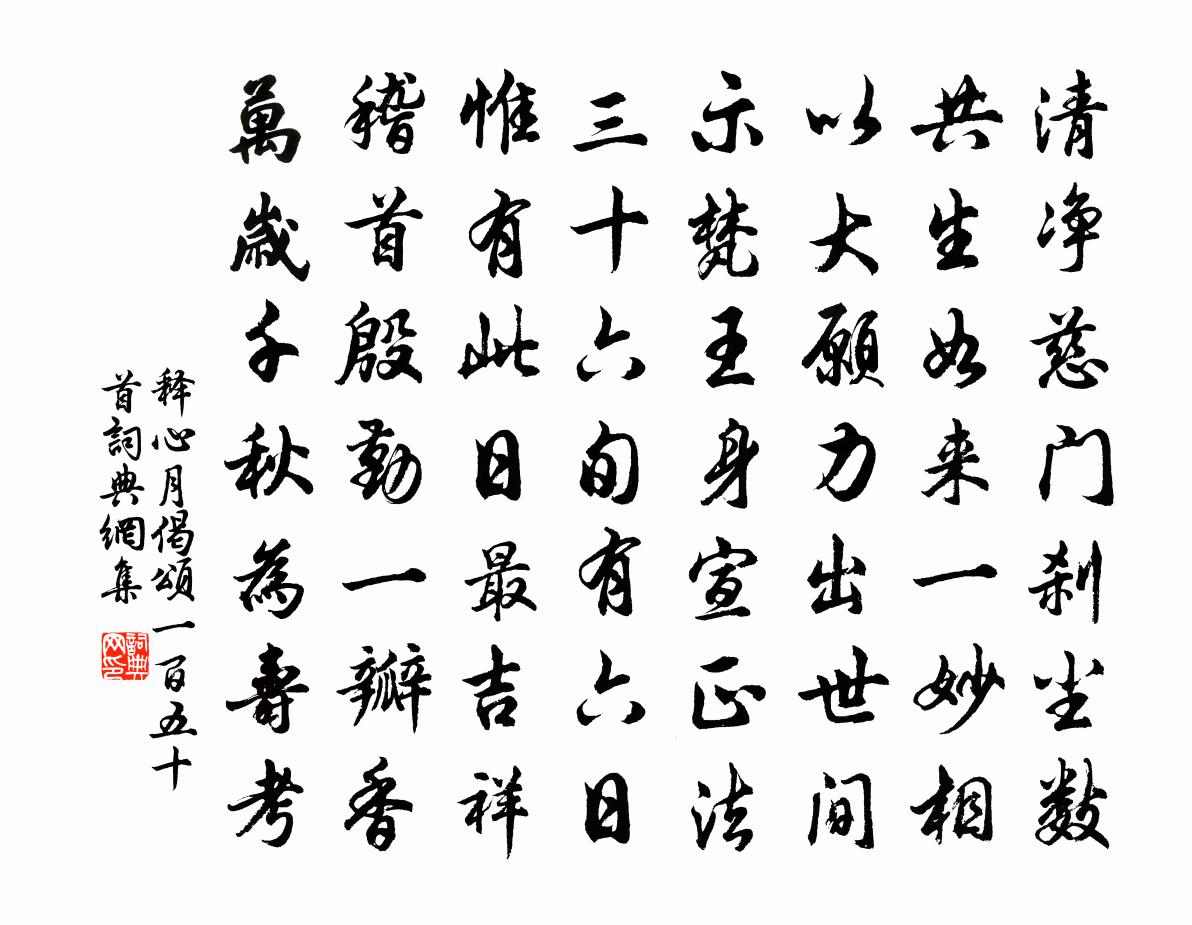 清净慈门刹尘数
共生如来一妙相
以大愿力出世间
示梵王身宣正法
三十六旬有六日
惟有此日最吉祥
稽首殷勤一瓣香
萬歲千秋為壽考
释心月偈頌一百五十
首詞典網集
詞典网印